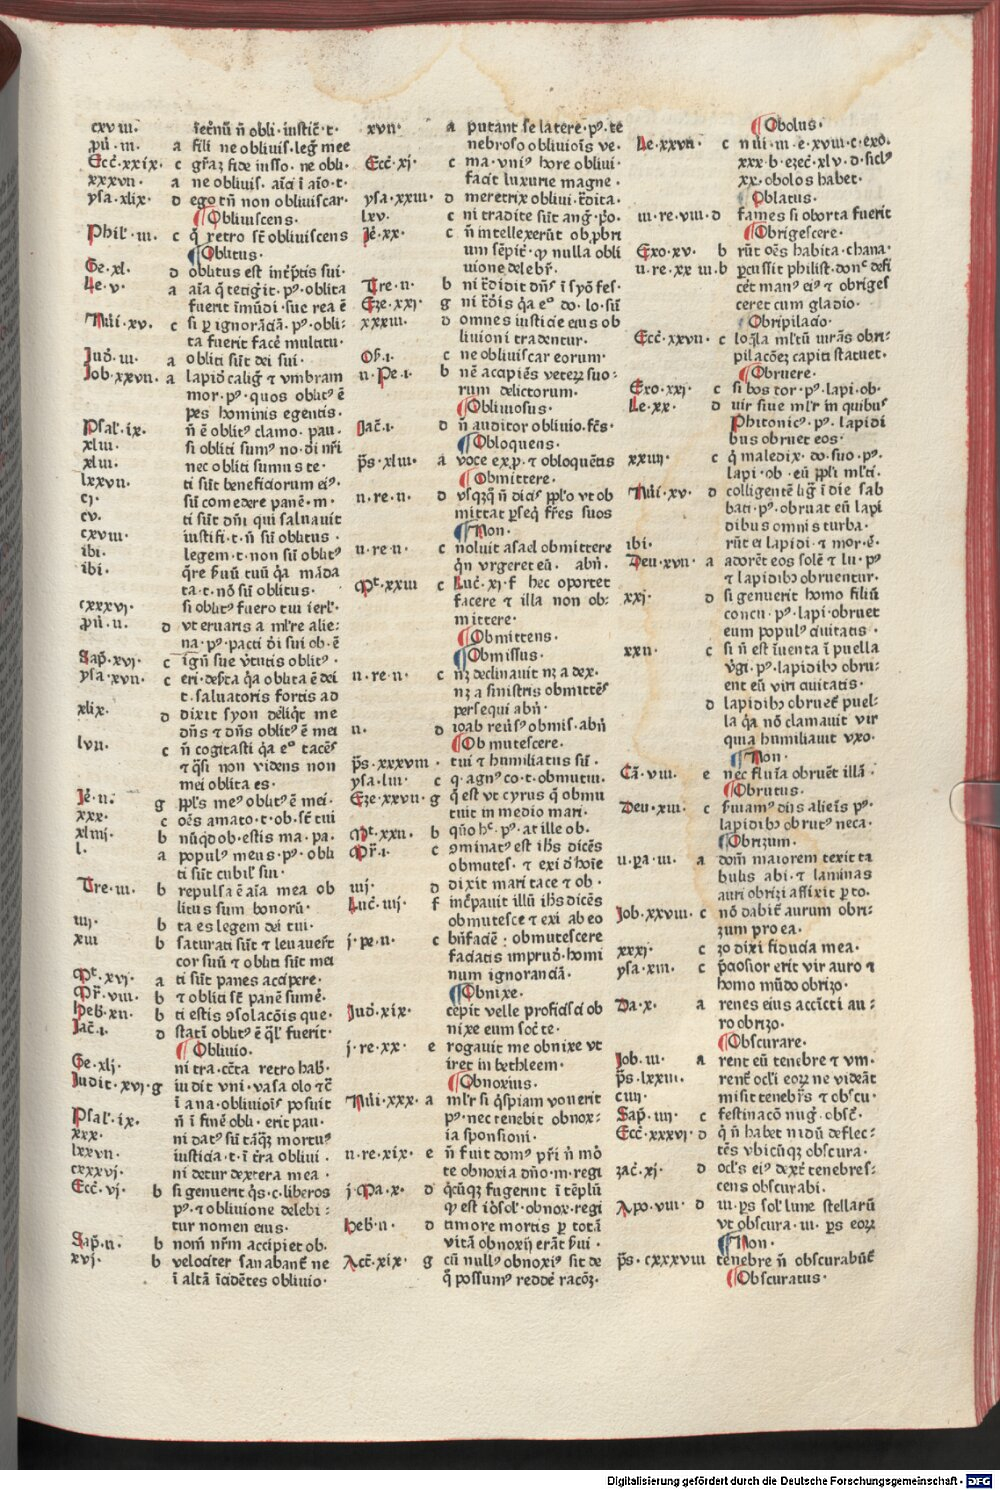 cxviii. ſecūdū ñ obli·iuſtic̄·t·
ꝓū·iii· a fili ne obliuiſ·leg̃ mee
Ecc̄·xxix· c gr̄az fide iuſſo·ne obli·
xxxvii· a ne obliuiſ·aīci ī aīo·t·
yſa·xlix· d ego tn̄ non obliuiſcar·
¶Obliuiſcens·
Phil'·iii· c q̄ retro ſt̄ obliuiſcens
¶Oblitus·
Ge·xl· d oblitus eſt int̄p̄tis ſui·
Le·v· a aīa q̄ tetig̃it·pꝰ·oblita
fuerit īmūdi·ſue rea ē
Nūi·xv· c ſi ꝑ ignorāciā·pꝰ·obli⸗
ta fuerit facē multitu·
Jud̄·iii· a obliti ſūt dei ſui·
Job·xxviii· a lapidē calig̃ ⁊ vmbram
mor·pꝰ·quos oblitꝰ ē
pes hominis egentis·
Pſal'·ix· ñ ē oblitꝰ clamo·pau·
xliii· ſi obliti ſumꝰ no·di nr̄i
xliii· nec obliti ſumus te·
lxxvii· ti ſūt beneficiorum eiꝰ·
cj· ſū comedere panē·m·
cv· ti ſūt dn̄i qui ſaluauit
cxviii· iuſtifi·t·ñ ſū oblitus·
ibi· legem·t·non ſū oblitꝰ
ibi· q̄re ẜuū tuū q̄a māda
ta·t·nō ſū oblitus·
cxxxvj· ſi oblitꝰ fuero tui ierl'·
ꝓū·ii· d vt eruaris a ml're alie⸗
na·pꝰ·pacti di ſui ob·ē
Sap̄·xvj· c ign̄ ſue v̄tutis oblitꝰ·
yſa·xvii· c eri·deſ̄ta q̄a oblita ē dei
t·ſaluatoris fortis ad
xlix· d dixit ſyon deliq̄t me
dn̄s ⁊ dn̄s oblitꝰ ē mei
lvii· c ñ cogitaſti q̄a eº tacēs
⁊ q̄ſi non videns non
mei oblita es·
Je·ii· g ppl's meꝰ oblitꝰ ē mei·
xxx· c oēs amato·t·ob·ſt̄ tui
xliiij· b nūqd ob·eſtis ma·pa·
l· a populꝰ meus·pꝰ·obli
ti ſūt cubil' ſui·
Tre·iii· b repulſa ē aīa mea ob
litus ſum bonorū·
iiij· b ta es legem dei tui·
xiii b ſaturati ſūt ⁊ leuauer̄t
cor ſuū ⁊ obliti ſūt mei
Mt·xvj· a ti ſūt panes accipere·
Mr̄·viii· b ⁊ obliti ſt̄ panē ſumē·
Heb̄·xii· b ti eſtis ꝯſolacōis que·
Jac̄·i· d ſtatī oblitꝰ ē q̄l' fuerit·
¶Obliuio·
Ge·xlj· ni tra·cc̄ta retro hab̄·
Judic·xvj·g iudit vni·vaſa olo ⁊c̄
ī ana·obliuiois poſuit
Pſal'·ix· ñ ī finē obli·erit pau·
xxx· ni datꝰ ſū tāq̄ mortuꝰ
lxxvii· iuſticia·t·ī t̄ra obliui·
cxxxvj· ni detur dextera mea·
Ecc̄·vj· b ſi genuerit q̄s·c·liberos
pꝰ·⁊ obliuione delebi⸗
tur nomen eius·
Sap̄·ii· b nom̄ nr̄m accipiet ob·
xvj· b velociter ſanabant̄ ne
ī altā īcidētes obliuio·
xvii· a putant ſe latere·pꝰ·te
nebroſo obliuiois ve·
Ecc̄·xj· c ma·vniꝰ hore obliui·
facit luxurie magne·
yſa·xxiii· d meretrix obliui·t̄dita·
lxv· c ni tradite ſūt ang̃·p̄o·
Je·xx· c ñ intellexerūt ob ꝓbri
um ſēpit̄·qꝫ nulla obli
uione delebr̄·
Tre·ii· b ni t̄didit dn̄s ī ſyō feſ·
Eze·xxj· g ni t̄dis q̄a eº do·lo·ſū
xxxiii· d omnes iuſticie eius ob
liuioni tradentur·
Oſ·i· c ne obliuiſcar eorum·
ii·Pe·i· b nē accipiēs veterꝝ ſuo⸗
rum delictorum·
¶Obliuioſus·
Jac̄·i· d ñ auditor obliuio·fc̄s·
¶Obloquens·
p̄s·xliii· a voce exp̄·⁊ obloquētis
¶Obmittere·
ii·re·ii· d vſqꝫ q̄ ñ dicis ppl'o vt ob
mittat ꝑſeq̄ fr̄es ſuos
¶Non·
ii·re·ii· c noluit aſael obmittere
q̄n vrgeret eū·abn̄·
Mt·xxiii c Luc̄·xj·f hec oportet
facere ⁊ illa non ob⸗
mittere·
¶Obmittens·
¶Obmiſſus·
ii·re·ii· c nꝫ declinauit nꝫ a dex·
nꝫ a ſiniſtris obmittēs
perſequi abn̄·
ii· d ioab reuſꝰ obmiſ·abn̄
¶Obmuteſcere·
p̄s·xxxviii· tui ⁊ humiliatus ſū·
yſa·liii· c q·agnꝰ co·t·obmutui·
Eze·xxvii·g q̄ eſt vt cyrus q̄ obmu
tuit in medio mari·
Mt·xxii· b qn̄o hᶜ·pꝰ·at ille ob·
Mr̄·i· c ꝯminatꝰ eſt ihs dicēs
obmuteſ·⁊ exi d̄ hoīe
iiij· d dixit mari tace ⁊ ob·
Luc̄·iiij· f incp̄auit illū ihs dicēs
obmuteſce ⁊ exi ab eo
j·pe·ii· c bn̄faciē·obmuteſcere
faciatis imprud̄·homi
num ignoranciā·
¶Obnixe·
Jud̄·xix· cepit velle proficiſci ob
nixe eum ſoc̄ te·
j·re·xx· e rogauit me obnixe vt
iret in bethleem·
¶Obnoxius·
Nūi·xxx· a ml'r ſi q̄ſpiam vouerit
pꝰ·nec tenebit obnox⸗
ia ſponſioni·
ii·re·xix· e ñ fuit domꝰ pr̄i ñ mō
te obnoxia dn̄o·m·regi
j·Ma·x· d q̄cūqꝫ fugerint ī tēplū
qꝫ eſt iēroſol'·obnox·regi
Heb̄·ii· d timore mortis ꝑ totā
vitā obnoxij erāt ẜui·
Act̄·xix· g cū nullꝰ obnoxiꝰ ſit de
q̄ poſſumꝰ redde racōꝫ·
¶Obolus·
Le·xxvii· c nūi·iii·e·xviii·c·exo·
xxx·b·ezec̄·xlv·d·ſiclꝰ
xx·obolos habet·
¶Oblatus·
iii·re·viii·d fames ſi oborta fuerit
¶Obrigeſcere·
Exo·xv· b rūt oēs habita·chana·
ii·re·xxiii·b ꝑcuſſit philiſt·donᶜ defi
cēt manꝰ eiꝰ ⁊ obrigeſ
ceret cum gladio·
¶Obripilacio·
Ecc̄·xxvii· c loq̄la ml'tū iurās obri⸗
pilacōeꝫ capiti ſtatuet·
¶Obruere·
Exo·xxj· c ſi bos cor·pꝰ·lapi·ob·
Le·xx· d vir ſiue ml'r in quibuſ
Phitonicꝰ·pꝰ·lapidi
bus obruet eos·
xxiiij· c q̄ maledix·do·ſuo·pꝰ·
lapi·ob·eū ppl'i ml'ti·
Nūi·xv· d colligentē lig̃ ī die ſab
bati·pꝰ·obruat eū lapi
dibus omnis turba·
ibi· rūt eū lapidi·⁊ mor·ē·
Deu·xvii· a adorēt eos ſolē ⁊ lu·pꝰ
⁊ lapidibꝫ obruentur·
xxj· d ſi genuerit homo filiū
concu·pꝰ·lapi·obruet
eum populꝰ ciuitatis·
xxii· c ſi ñ eſt īuenta ī puella
v̄gi·pꝰ·lapidibꝫ obru⸗
ent eū viri ciuitatis·
d lapidibꝫ obruet̄ puel⸗
la q̄a nō clamauit vir
quia humiliauit vxo·
¶Non·
Cā·viii· e nec fluīa obruēt illā·
¶Obrutus·
Deu·xiii· c ẜuiamꝰ diis alieīs pꝰ·
lapidibꝫ obrutꝰ neca·
¶Obrizum·
ii·pa·iii· a dom̄ maiorem texit ta
bulis abi·⁊ laminas
auri obrizi affixit ꝑ to·
Job·xxviii· c nō dabit̄ aurum obri⸗
zum pro ea·
xxxj· c zo dixi fiducia mea·
yſa·xiii· c p̄cioſior erit vir auro ⁊
homo mūdo obrizo·
Da·x· a renes eius accīcti au⸗
ro obrizo·
¶Obſcurare·
Job·iii· a rent eū tenebre ⁊ vm·
p̄s·lxxiii· rent̄ ocl'i eoꝝ ne videāt
ciiij· miſit tenebr̄s ⁊ obſcu·
Sap̄·iiij· c feſtinacō nug̃·obſc̄·
Ecc̄·xxxvj· d q̄ ñ habet nidū deflec⸗
tēs vbicūqꝫ obſcura·
zac̄·xj· d ocl's eiꝰ dext̄ tenebreſ⸗
cens obſcurabi·
Apo·viii· d iii·ꝑs ſol' lune ſtellarū
vt obſcura·iii·ꝑs eoꝝ
¶Non·
p̄s·cxxxviii tenebre ñ obſcurabūt̄
¶Obſcuratus·
Digitalisierung gefördert durch die Deutsche Forschungsgemeinschaft - DFG